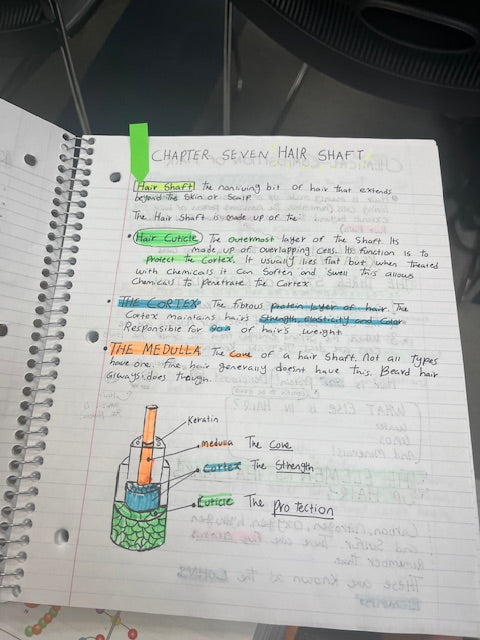 CHAPTER SEVEN HAIR SHAFT
Hair Shaft The nonliving bit of hair that extends
beyond the Skin or Scalp
The Hair Shaft is made up of the
• Hair Cuticle The outermost layer of the Shaft. Its
made up of overlapping cells. Its function is to
protect the Cortex. It usually lies flat but when treated
with Chemicals it Can Soften and Swell this allows
Chemicals to penetrate the Cortex
• THE CORTEX The fibrous protein layer of hair. The
Cortex maintains hair's Strength, elasticity and Color.
Responsible for 90% of hair's weight
• THE MEDULLA The Core of a hair Shaft. Not all types
have one. Fine hair generally doesnt have this. Beard hair
always does though.
Keratin
medulla The Core
Cortex The Strength
Cuticle The protection
WHAT ELSE is IN HAIR?